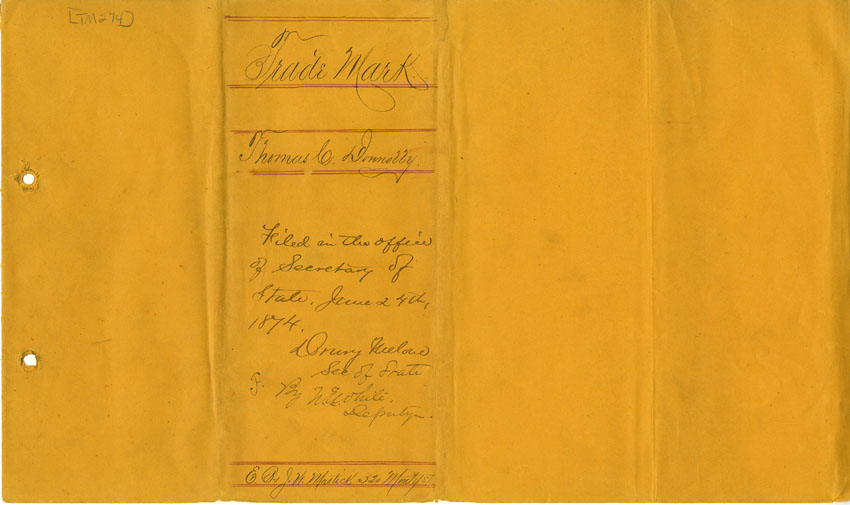 [TM274]
Trade Mark
Thomas C. Donnolly.
Filed in the office
of Secretary of
State. June 24th,
1874.
Drury Melone
Sec of State
F. By White.
Deputy.
E By J. W. 320 Montg St